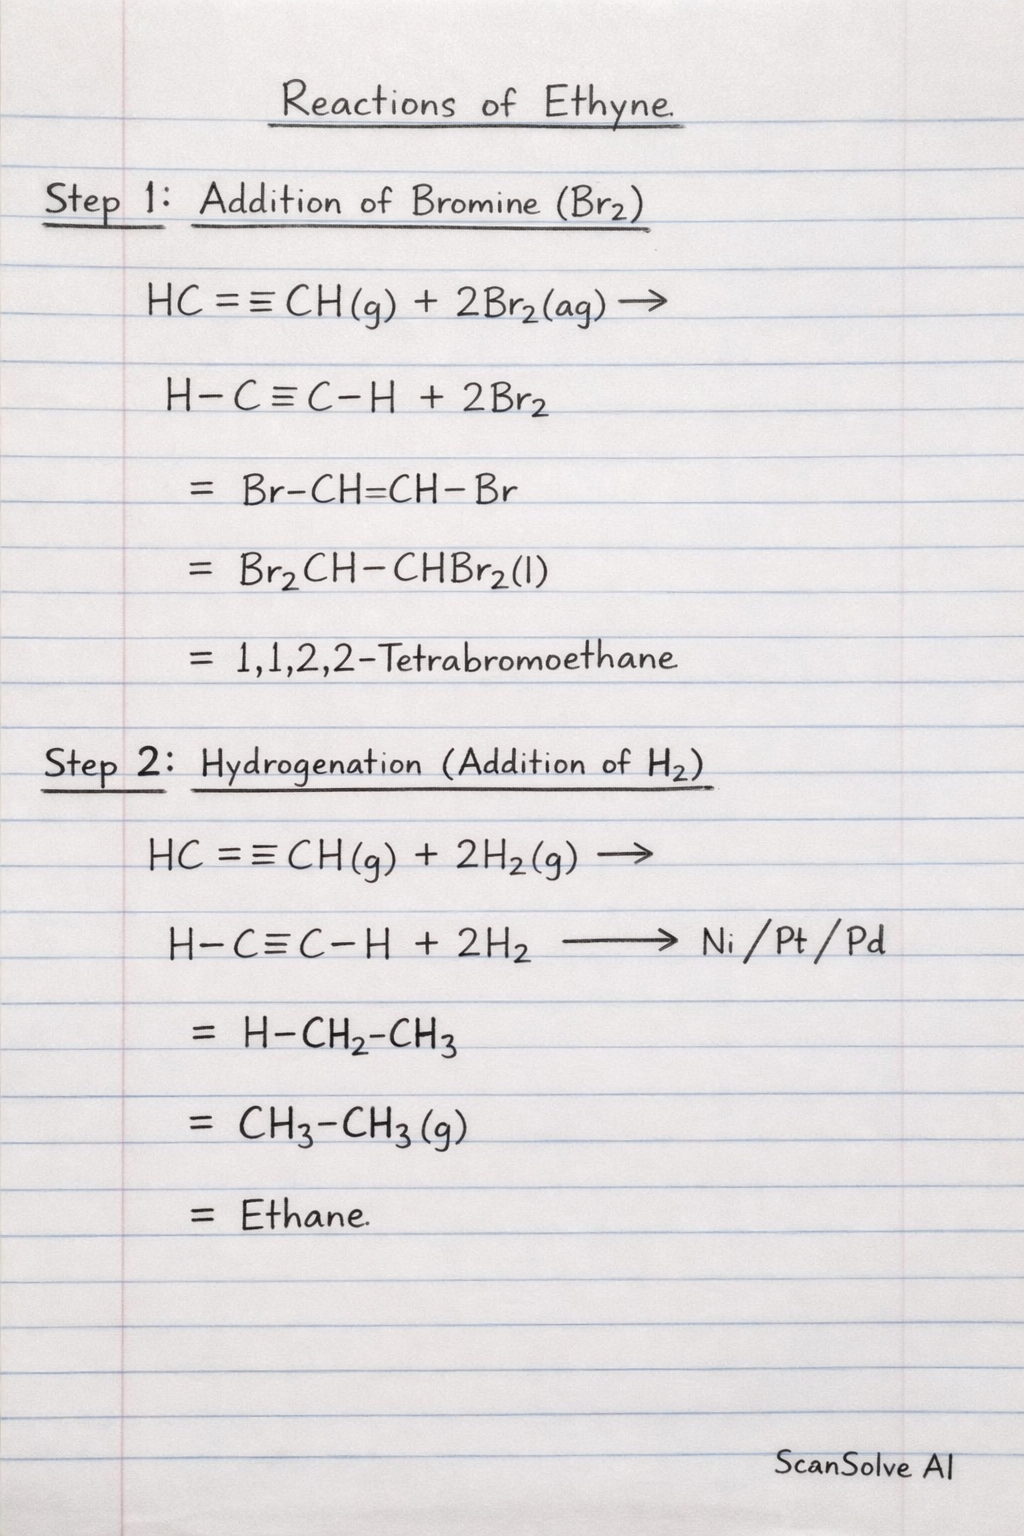 Reactions of Ethyne.
Step 1: Addition of Bromine (Br₂)
HC =≡ CH(g) + 2Br₂(ag) →
H–C≡C–H + 2Br₂
= Br–CH=CH–Br
= Br₂CH–CHBr₂(l)
= 1,1,2,2-Tetrabromoethane
Step 2: Hydrogenation (Addition of H₂)
HC =≡ CH(g) + 2H₂(g) →
H–C≡C–H + 2H₂ ⟶ Ni/Pt/Pd
= H–CH₂–CH₃
= CH₃–CH₃(g)
= Ethane.
ScanSolve AI